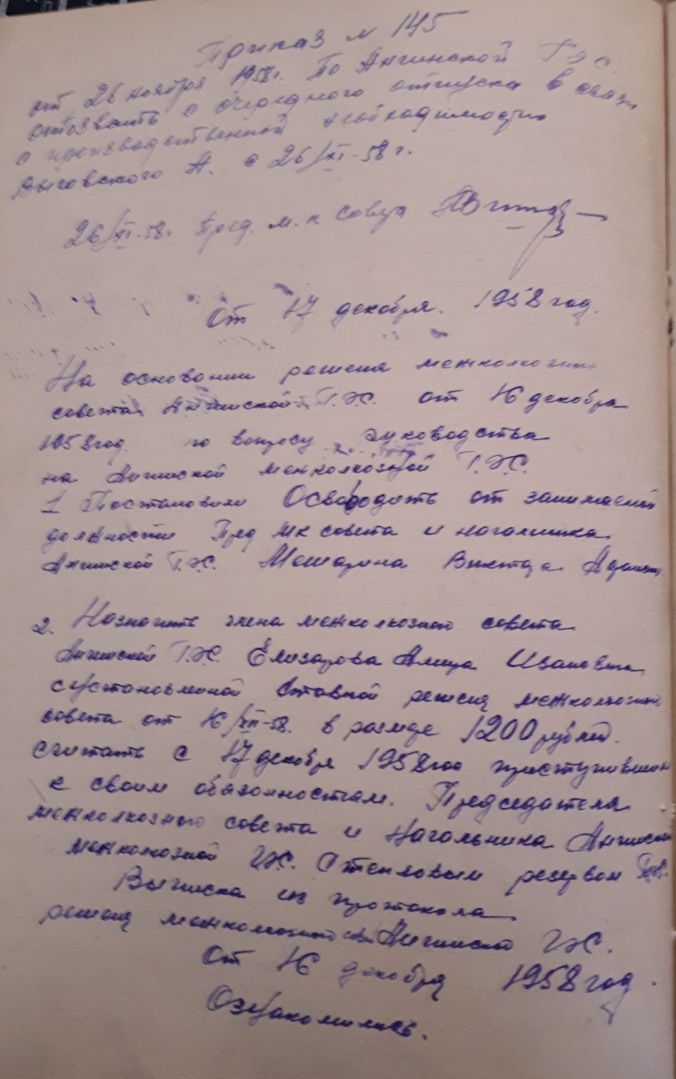 Приказ № 145
от 26 ноября 1958г. По Ангинской ГЭС
отозвать с очередного отпуска в связи
с производственной необходимости
Выговского А. с 26/XI-58 г.
26/XI-58г. Пред. м. к совета
От 17 декабря. 1958 год.
На основании решения межколхозного
совета Ангинской Г.Э.С. от 16 декабря
1958год по вопросу руководства
на Ангинской межколхозной Г.Э.С.
1 Постановили Освободить от занимаемой
должности Пред мк совета и начальника
Ангинской Г.Э.С. Виктора
2. Назначить члена межколхозного совета
Ангинской Г.Э.С. Елизарова Ивановича
с установленной ставкой решения межколхозного
совета от 16/XII-58. в размере 1200 рублей.
считать с 17 декабря 1958год приступившим
к своим обязанностям. Председателя
межколхозного совета и Начальника Ангинской
межколхозной ГЭС. С тепловым резервом
Выписка из протокола
решения межколхозного Ангинской ГЭС.
От 16 декабря 1958 год.
Ознакомились.